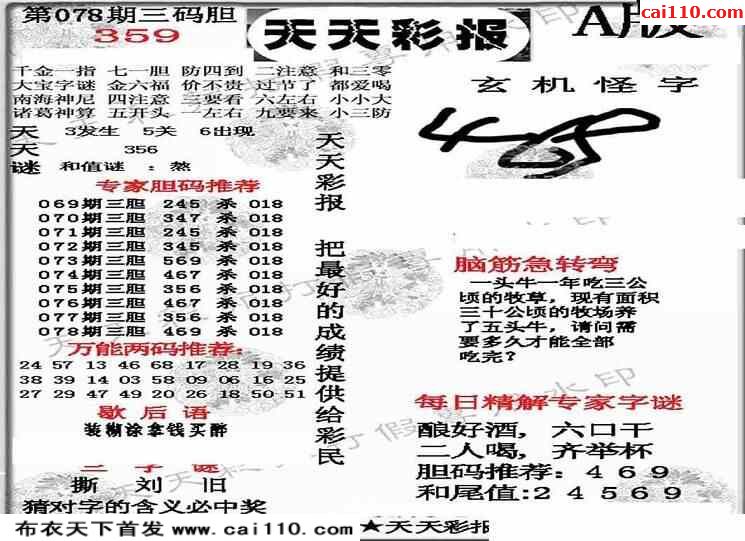 第078期三码胆
359
天天彩报
A版
cai110.com
千金一指 七一胆 防四到 二注意 和三零
大宝字谜 金六福 价不贵 过节了 都爱喝
南海神尼 四注意 三要看 六左右 小小大
诸葛神算 五开头 一左右 九要来 小三防
天 3发生 5关 6出现
天 356
谜 和值谜：熬
专家胆码推荐
069期三胆 245 杀 018
070期三胆 347 杀 018
071期三胆 245 杀 018
072期三胆 345 杀 018
073期三胆 569 杀 018
074期三胆 467 杀 018
075期三胆 356 杀 018
076期三胆 467 杀 018
077期三胆 356 杀 018
078期三胆 469 杀 018
万能两码推荐：
24 57 13 46 68 17 28 19 36
38 39 14 03 58 09 06 16 25
27 29 47 49 20 26 18 50 51
歇后语
装糊涂拿钱买醉
三字谜
撕 刘 旧
猜对字的含义必中奖
天天彩报 把最好的成绩提供给彩民
玄机怪字
脑筋急转弯
一头牛一年吃三公
顷的牧草，现有面积
三十公顷的牧场养
了五头牛，请问需
要多久才能全部
吃完？
每日精解专家字谜
酿好酒，六口干
二人喝，齐举杯
胆码推荐：469
和尾值:24569
布衣天下首发 www.cai110.com ★天天彩报